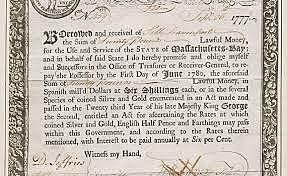 1777.
Borrowed and received of
the Sum of Lawful Money,
for the Use and Service of the State of Massachusetts-Bay;
and in behalf of said State I do hereby promise and oblige myself
and Successors in the Office of Treasurer or Receiver-General, to
repay the Possessor by the First Day of June 1780, the aforesaid Sum
of Lawful Money, in
Spanish mill'd Dollars at Six Shillings each, or in the several
Species of coined Silver and Gold enumerated in an Act made and
passed in the Twenty third Year of his late Majesty King George
the Second, entitled an Act for ascertaining the Rates at which
coined Silver and Gold, English Half Pence and Farthings may pass
within this Government, and according to the Rates therein
mentioned, with Interest to be paid annually at Six per Cent.
Witness my Hand,
D. Jeffries